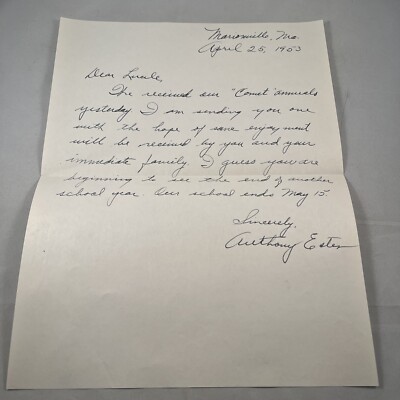 Marionville, Mo.
April 25, 1953
Dear Lucile,
The received our "Comet" annuals
yesterday. I am sending you one
with the hope of some enjoyment
will be received by you and your
immediate family. I guess you are
beginning to see the end of another
school year. Our school ends May 15.
Sincerely,
Anthony Estes